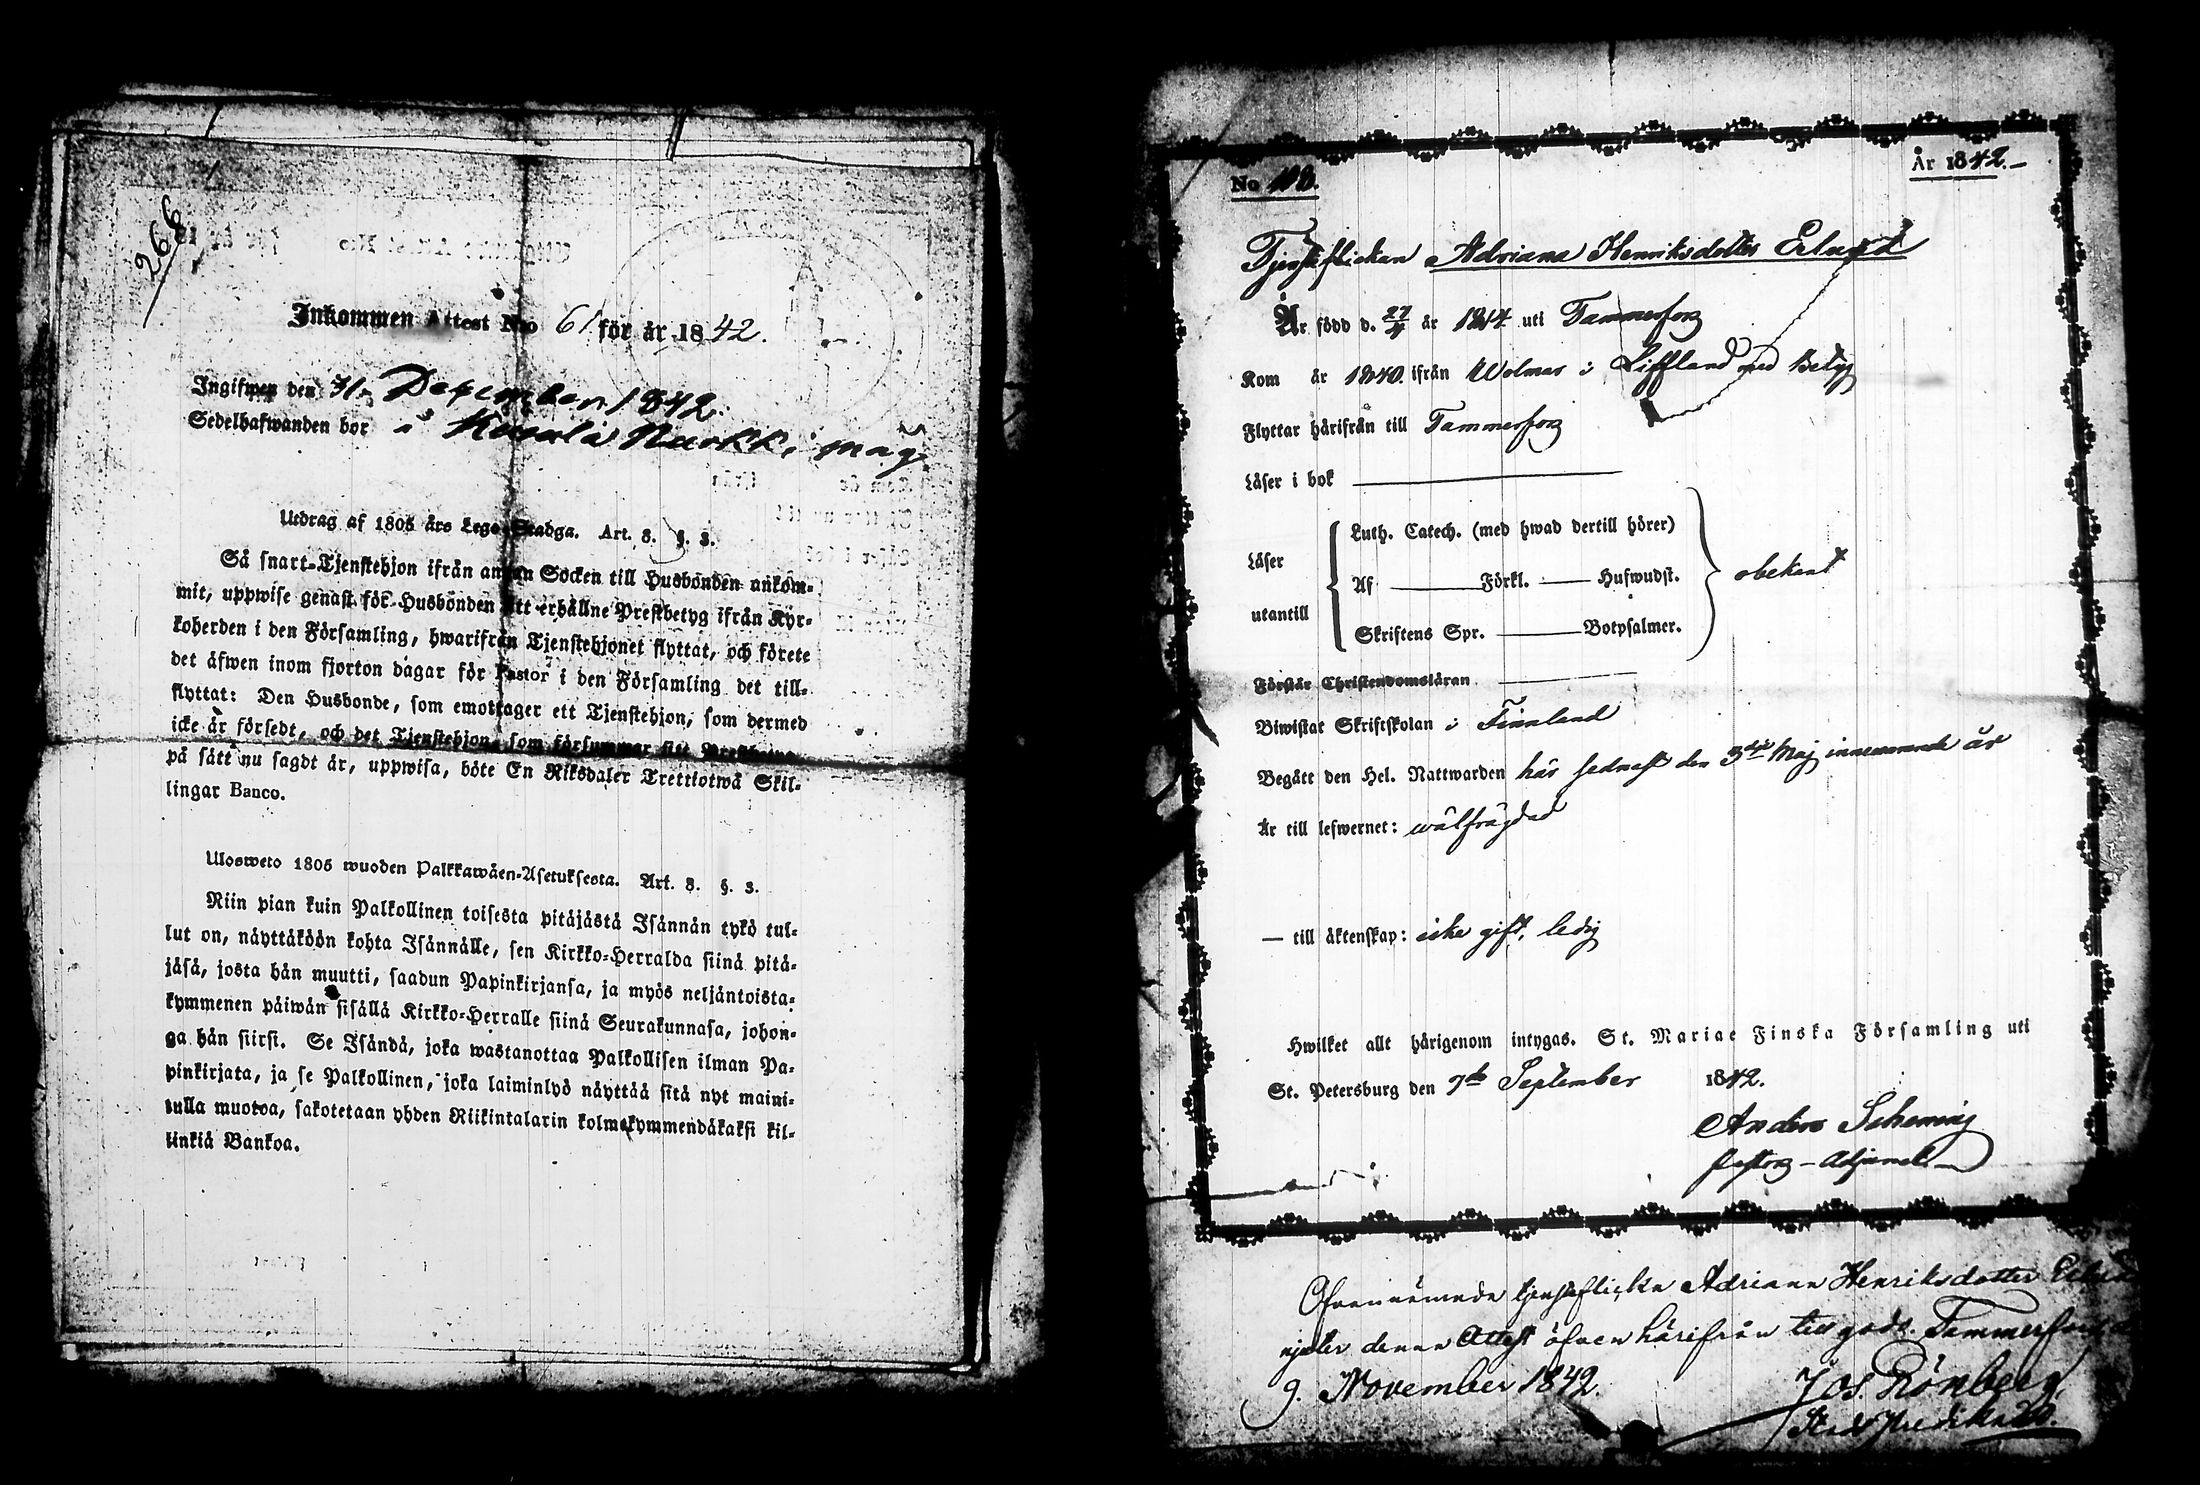 266
Inkommen Attest N:o 61 för år 1842.
Ingifwen den 31 December 1842.
Sedelhafwanden bor i
Utdrag af 1805 års Lego-Stadga. Art. 8. §. 3.
Så snart Tjenstehjon ifrån annan Socken till Husbonden ankom-
mit, uppwise genast för Husbonden sitt erhållne Prestbetyg ifrån Kyr-
koherden i den Församling, hwarifrån Tjenstehjonet flyttat, och förete
det äfwen inom fjorton dagar för Pastor i den Församling det till-
flyttat: Den Husbonde, som emottager ett Tjenstehjon, som dermed
icke är försedt, och det Tjenstehjon, som försummar sitt Prestbetyg
på sätt nu sagdt är, uppwisa, böte En Riksdaler Trettiotwå Skil-
lingar Banco.
Ulosweto 1805 wuoden Palkkawäen-Asetuksesta. Art. 8. §. 3.
Niin pian kuin Palkollinen toisesta pitäjästä Isännän tykö tul-
lut on, näyttäköön kohta Isännälle, sen Kirkko-Herralda siinä pitä-
jäsä, josta hän muutti, saadun Papinkirjansa, ja myös neljäntoista-
kymmenen päiwän sisällä Kirkko-Herralle siinä Seurakunnasa, johon-
ga hän siirsi. Se Isändä, joka wastanottaa Palkollisen ilman Pa-
pinkirjata, ja se Palkollinen, joka laiminlyö näyttää sitä nyt maini-
tulla muotoa, sakotetaan yhden Riikintalarin kolmekymmendäkaksi kil-
linkiä Bankoa.
No 108. År 1842.
Tjensteflickan Adriana Henriksdotter Erlund
Är född d. 27/4 år 1814 uti Tammerfors
Kom år 1840 ifrån Wolmar i Liffland med Betyg
Flyttar härifrån till Tammerfors
Läser i bok
Luth. Catech. (med hwad dertill hörer)
Läser utantill Af Förkl. Hufwudst. obekant
Skriftens Spr. Botpsalmer.
Förstår Christendomsläran
Biwistat Skriftskolan i Finnland
Begått den Hel. Nattwarden här sednast den 3die Maj innewarande år
Är till lefwernet: wälfrägdad
— till äktenskap: icke gift, ledig
Hwilket allt härigenom intygas. St. Mariae Finska Församling uti
St. Petersburg den 7de September 1842.
Anders Schening
Pastors-Adjunct
Ofvannämnda tjensteflicka Adriana Henriksdotter
njuter denna Attest öfven härifrån till godo. Tammerfors
9. November 1842.
Jos. Rönberg